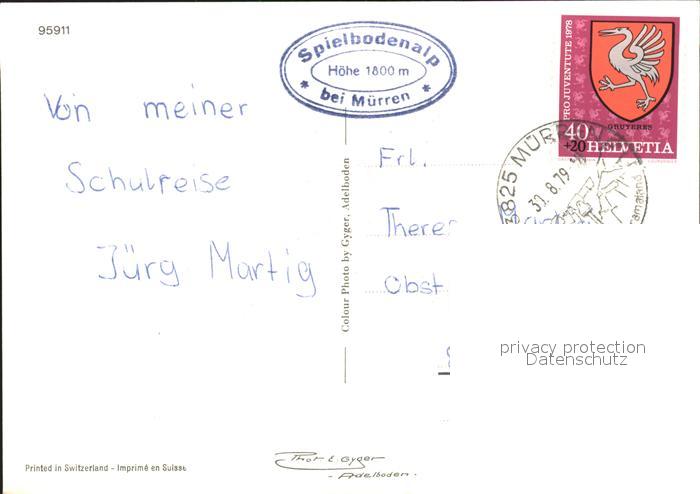 95911
Spielbodenalp
Höhe 1800 m
* bei Mürren *
PRO JUVENTUTE 1978
GRUYERES
40
+20 HELVETIA
3825 MÜRREN
30.8.79
Von meiner
Schulreise
Jürg Martig
Colour Photo by Gyger, Adelboden
Frl.
Obst
privacy protection
Datenschutz
Printed in Switzerland - Imprimé en Suisse
Phot E. Gyger
- Adelboden -